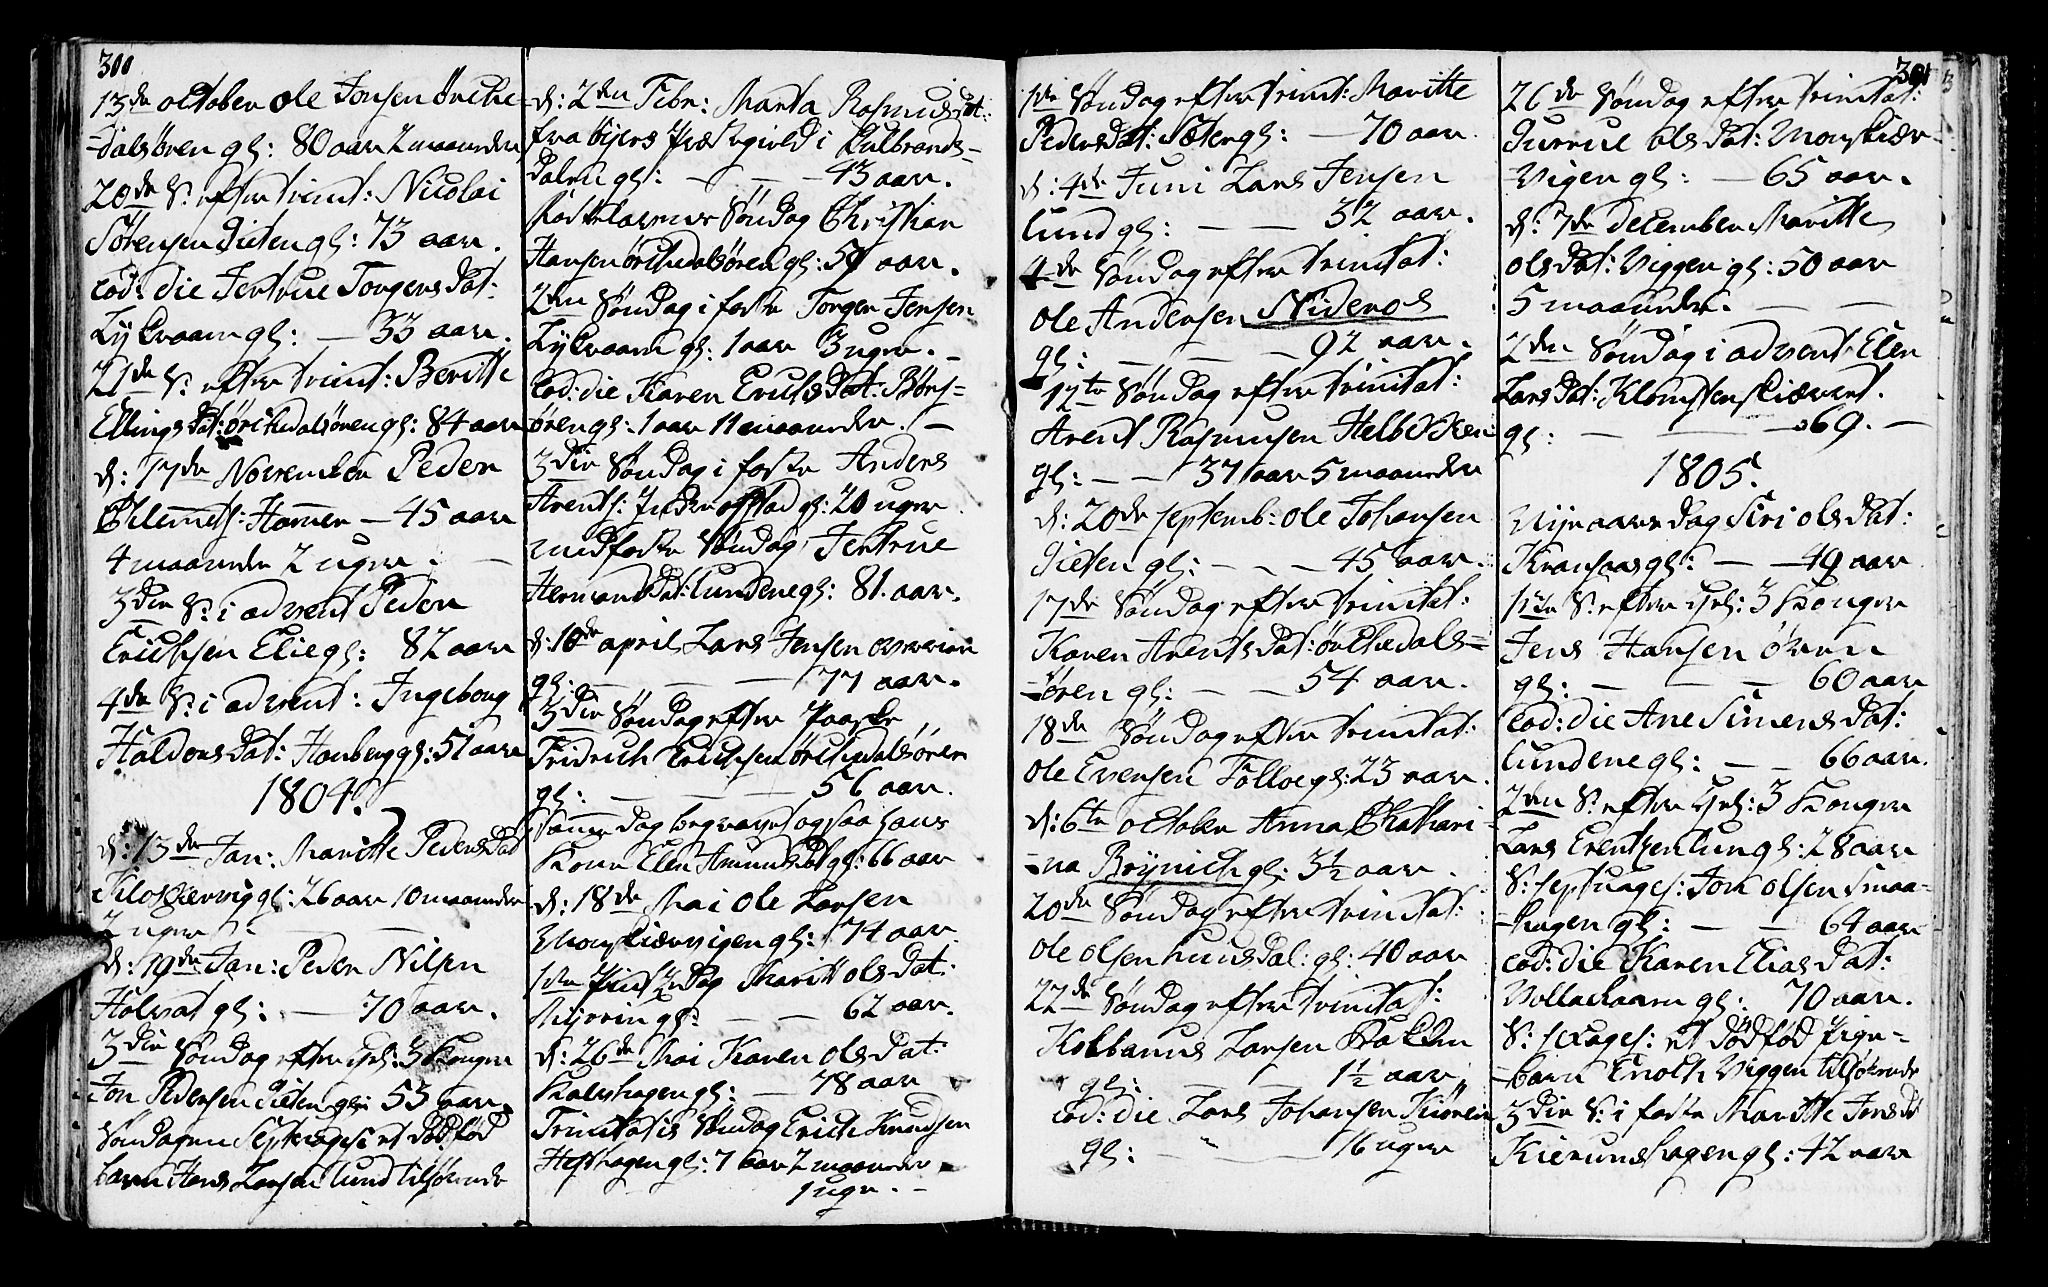 300
13de october ole Jonsen örche
-dalsören gl: 80 aar 2 maaneder
20de S: efter trinit: Nicolai
Sörensen Gieten gl: 73 aar.
eod: die Jertrue Torgersdat:
Lykraam gl: — 33 aar.
21de S: efter trinit: Beritte
Ellingsdat: örchedalsören gl: 84 aar
d: 17de November Peder
Chlemets: Hammer — 45 aar
4 maaneder 2 uger. —
3die S: i advent Peder
Erichsen Elie gl: 82 aar
4de S: i advent: Ingeborg
Haldorsdat: Hanberg gl: 51 aar
1804.
d: 13de Jan: Maritte Pedersdat
gl: 26 aar 10 maaneder
2 uger. —
d: 19de Jan: Peder Nilsen
Holvat gl: — 70 aar.
3die Söndag efter Hel: 3 Konger
Jon Pedersen Gieten gl: 53 aar.
Söndagen Septuages: et dödfød
barn Hans Larsen lund tilhørende
d: 2den Febr: Marta Rasmusdat:
fra öyers Præstegield i Gulbrands-
dalen gl: — — 43 aar.
Fastelavens Söndag Christian
Hansen örchedalsören gl: 59 aar.
2den Söndag i faste Torger Jensen
Lykraam gl: 1 aar 3 uger. —
eod: die Karen Erichsdat: Börs-
ören gl: 1 aar 11 maaneder. —
3die Söndag i faste Anders
Arents: gl: 20 uger.
midfaste Söndag Jertrue
Hermansdat: lundene gl: 81. aar.
d: 10de april Lars Jensen
gl: — — — 77 aar.
3die Söndag efter Paaske
Fridrich Erichsen örchedalsören
gl: — — — 56 aar.
samme dag begravet ogsaa hans
Kone Elen Amundsdat gl: 66 aar
d: 18de Mai Ole Larsen
Monskiervigen gl: 74 aar.
1ste Pintzedag Marit olsdat:
Myrrin gl: — — 62 aar.
d: 26de Mai Karen olsdat:
Kalvhagen gl: — 78 aar
Trinitatis Söndag Erich Knudsen
Hesthagen gl: 7 aar 2 maaneder
1 uge. —
301
1ste Söndag efter trinit: Maritte
Pedersdat: Sæter gl: — 70 aar.
d: 4de Juni Lars Jensen
lund gl: — — 32 aar.
4de Söndag efter trinitat:
ole Andersen Nideros
gl: — — — 92 aar.
12te Söndag efter trinitat:
Arent Rasmusen Helbekken
gl: — — 37 aar 5 maaneder
d: 20de septemb: ole Johansen
Gieten gl: — — — 45 aar.
17de Söndag efter trinitat:
Karen Arentsdat: örchedals-
-ören gl: — — 54 aar.
18de Söndag efter trinitat:
ole Evensen Folloe gl: 23 aar.
d: 6te october Anna Chathari-
-na Brÿnich gl: 3½ aar.
20de Söndag efter trinitat:
ole olsen huusdal: gl: 40 aar
22de Söndag efter trinitat:
Kolbanus Larsen Bakken
gl: — — 1½ aar
eod: die Lars Johansen Kiören
gl: — — 16 uger
26de Söndag efter trinitat:
Gurrue olsdat: Monskier-
vigen gl: — 65 aar.
d: 7de december Maritte
olsdat: Viggen gl: 50 aar
5 maaneder. — —
2den Söndag i advent Elen
Larsdat: Klomstenskiæret.
gl: — — 69. —
1805.
Nÿeaarsdag Siri olsdat:
Kraasaas gl: — — 49 aar
1ste S: efter Hel: 3 Konger
Jens Hansen Ören
gl: — — — 60 aar
eod: die Ane Simensdat:
lundene gl: — — 66 aar.
2den S: efter Hel: 3 Konger
Lars Erentsen lun gl: 28 aar
S: septuages: Jon olsen Smaa-
-hagen gl: — — 64 aar
eod: die Karen Eliasdat:
Vollachaarn gl: 70 aar.
S: sexages: et dödfød pige-
-barn Enoch Viggen tilhørende
3die S: i faste Maritte Jensdt
Kierunshagen gl: 42 aar